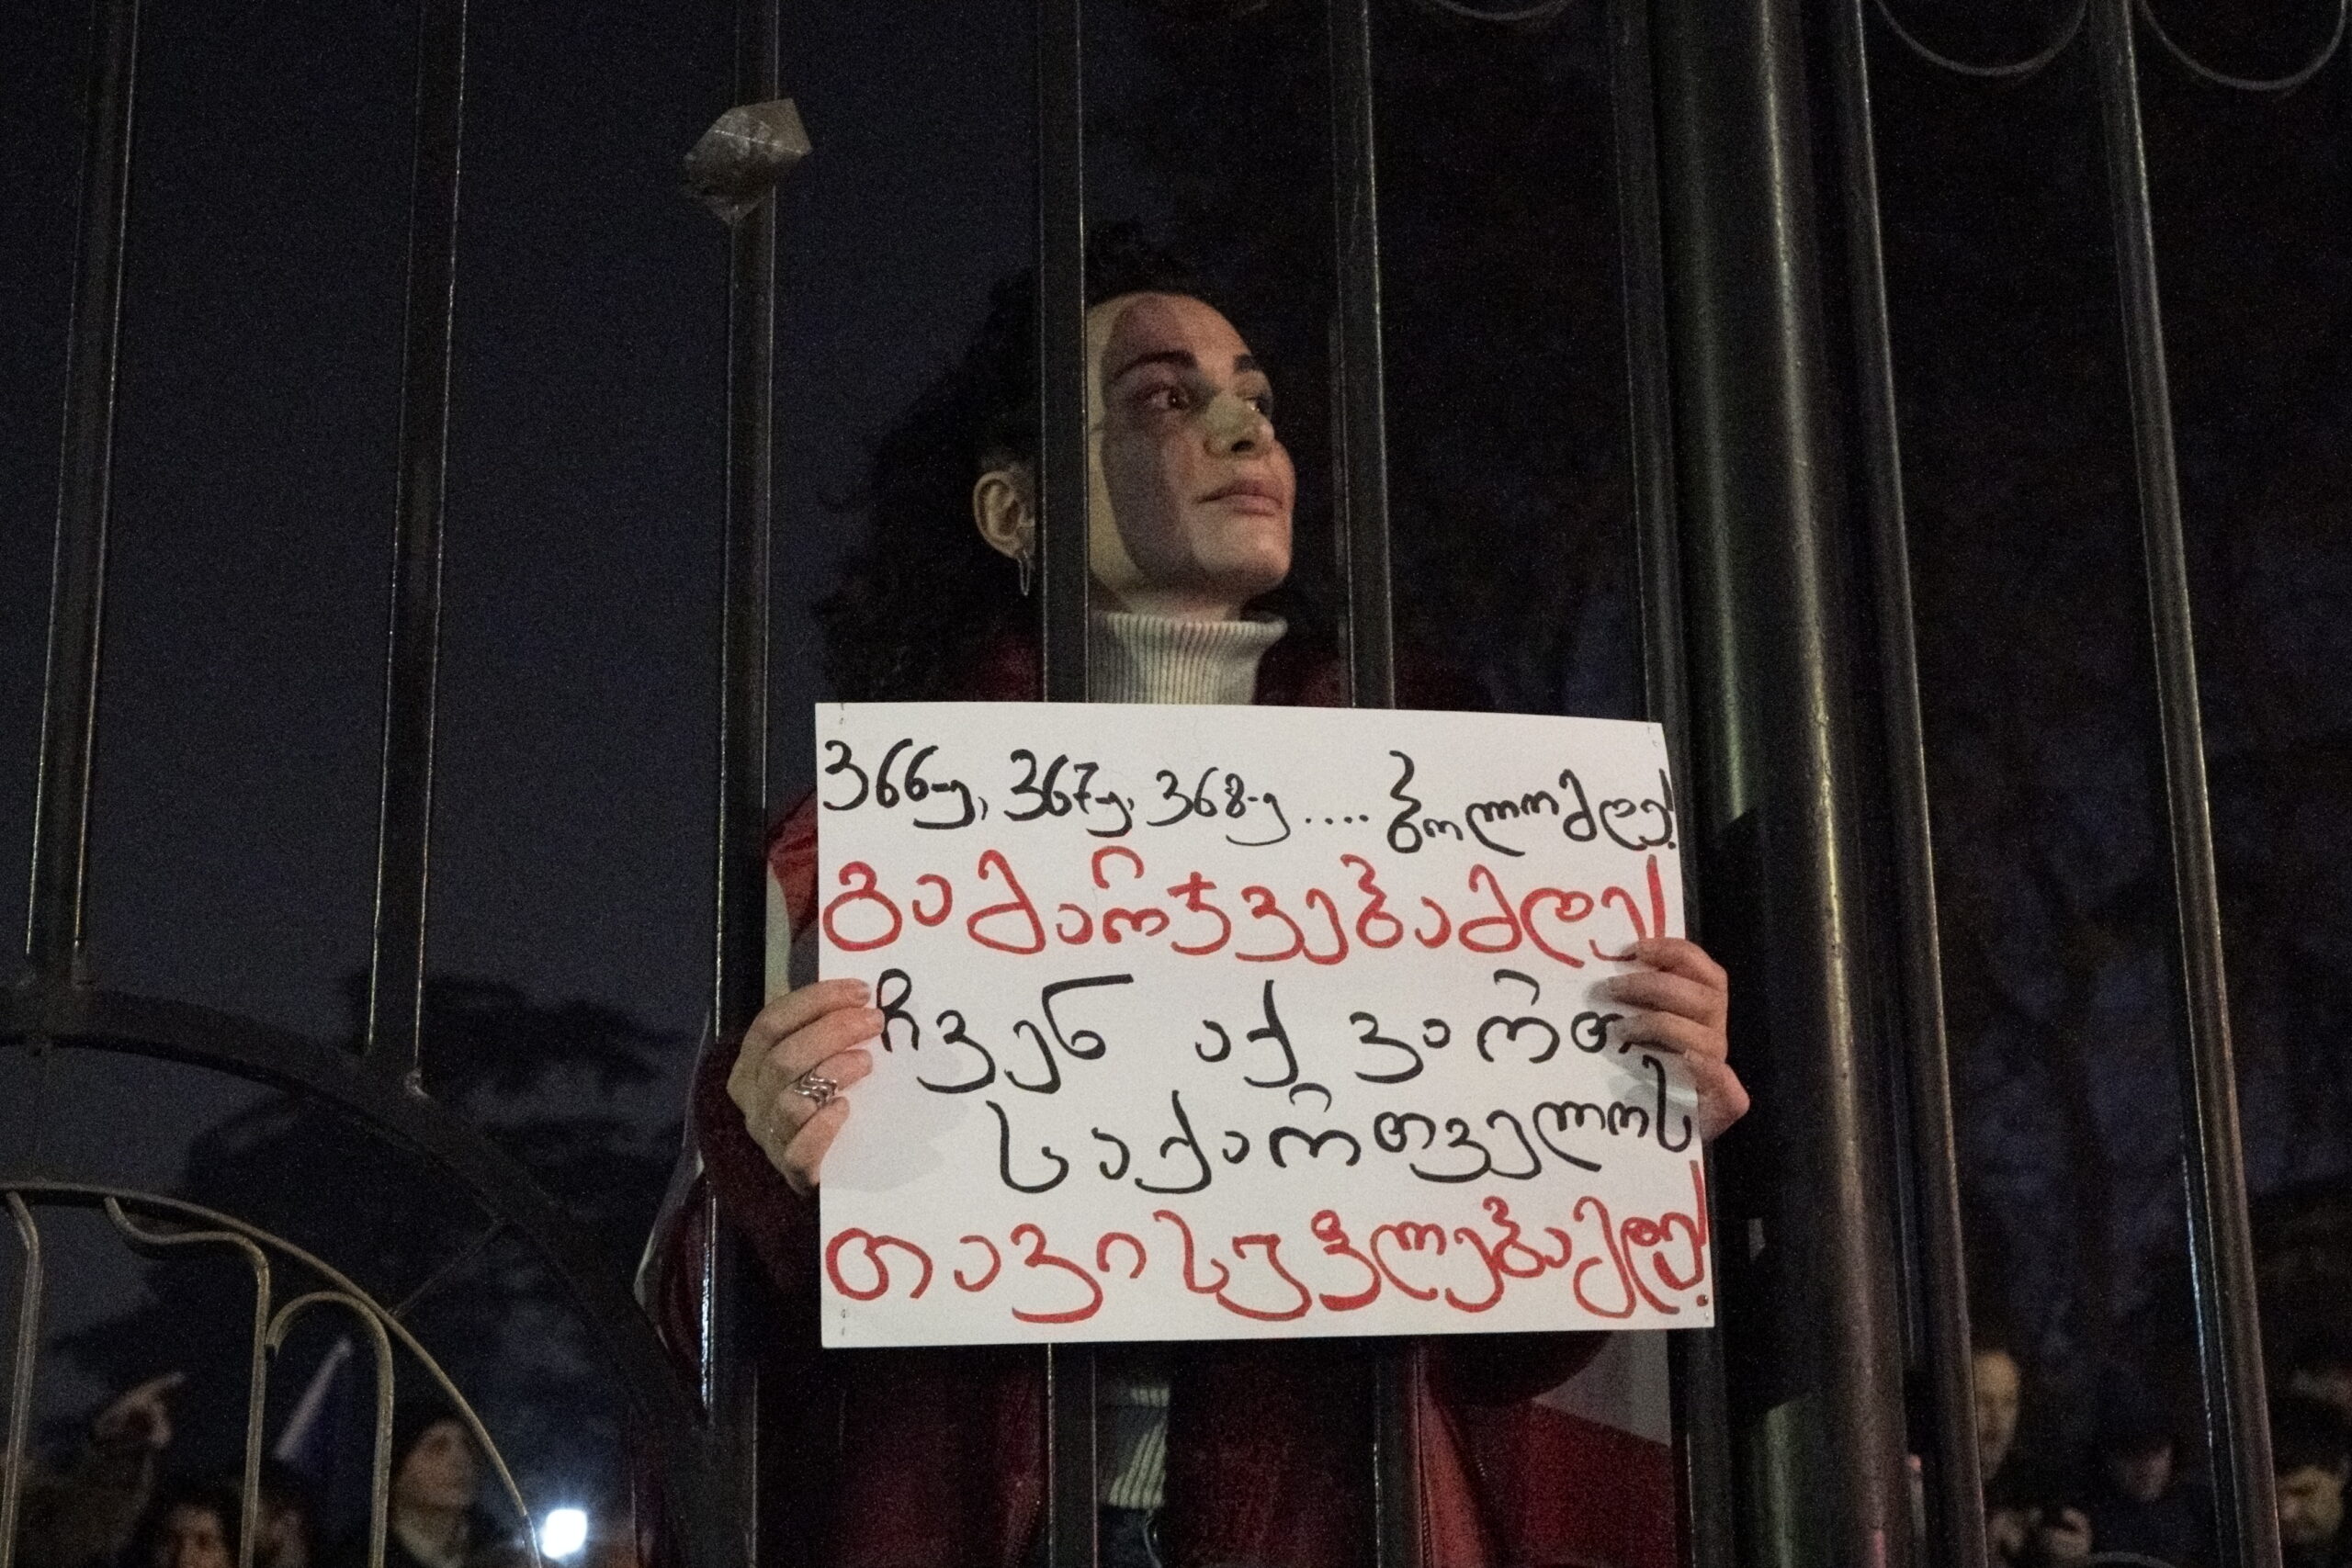 366-ე, 367-ე, 368-ე .... ბოლომდე!
გამარჯვებამდე!
ჩვენ აქ ვართ
საქართველოს
თავისუფლებამდე!